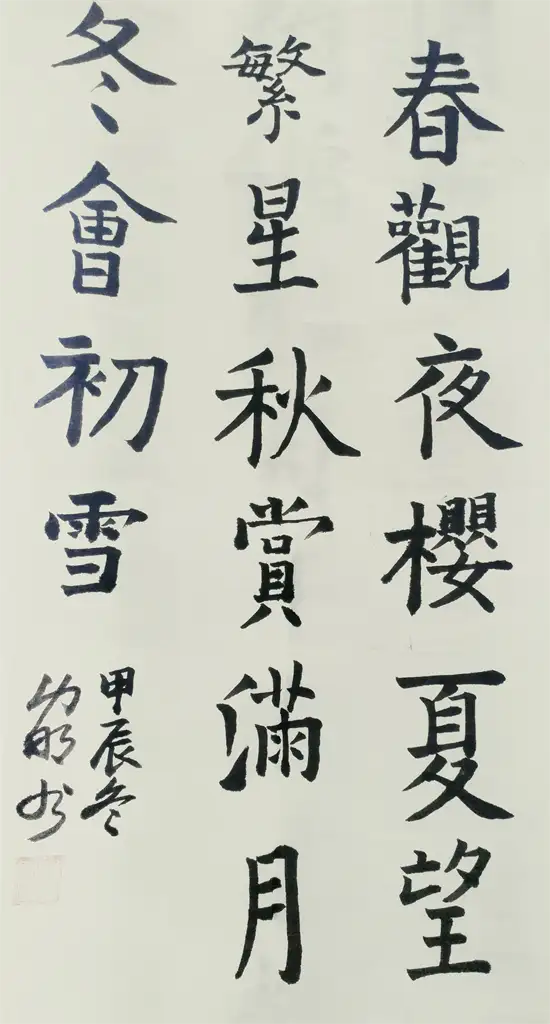 春觀夜櫻夏望
繁星秋賞滿月
冬會初雪
甲辰冬